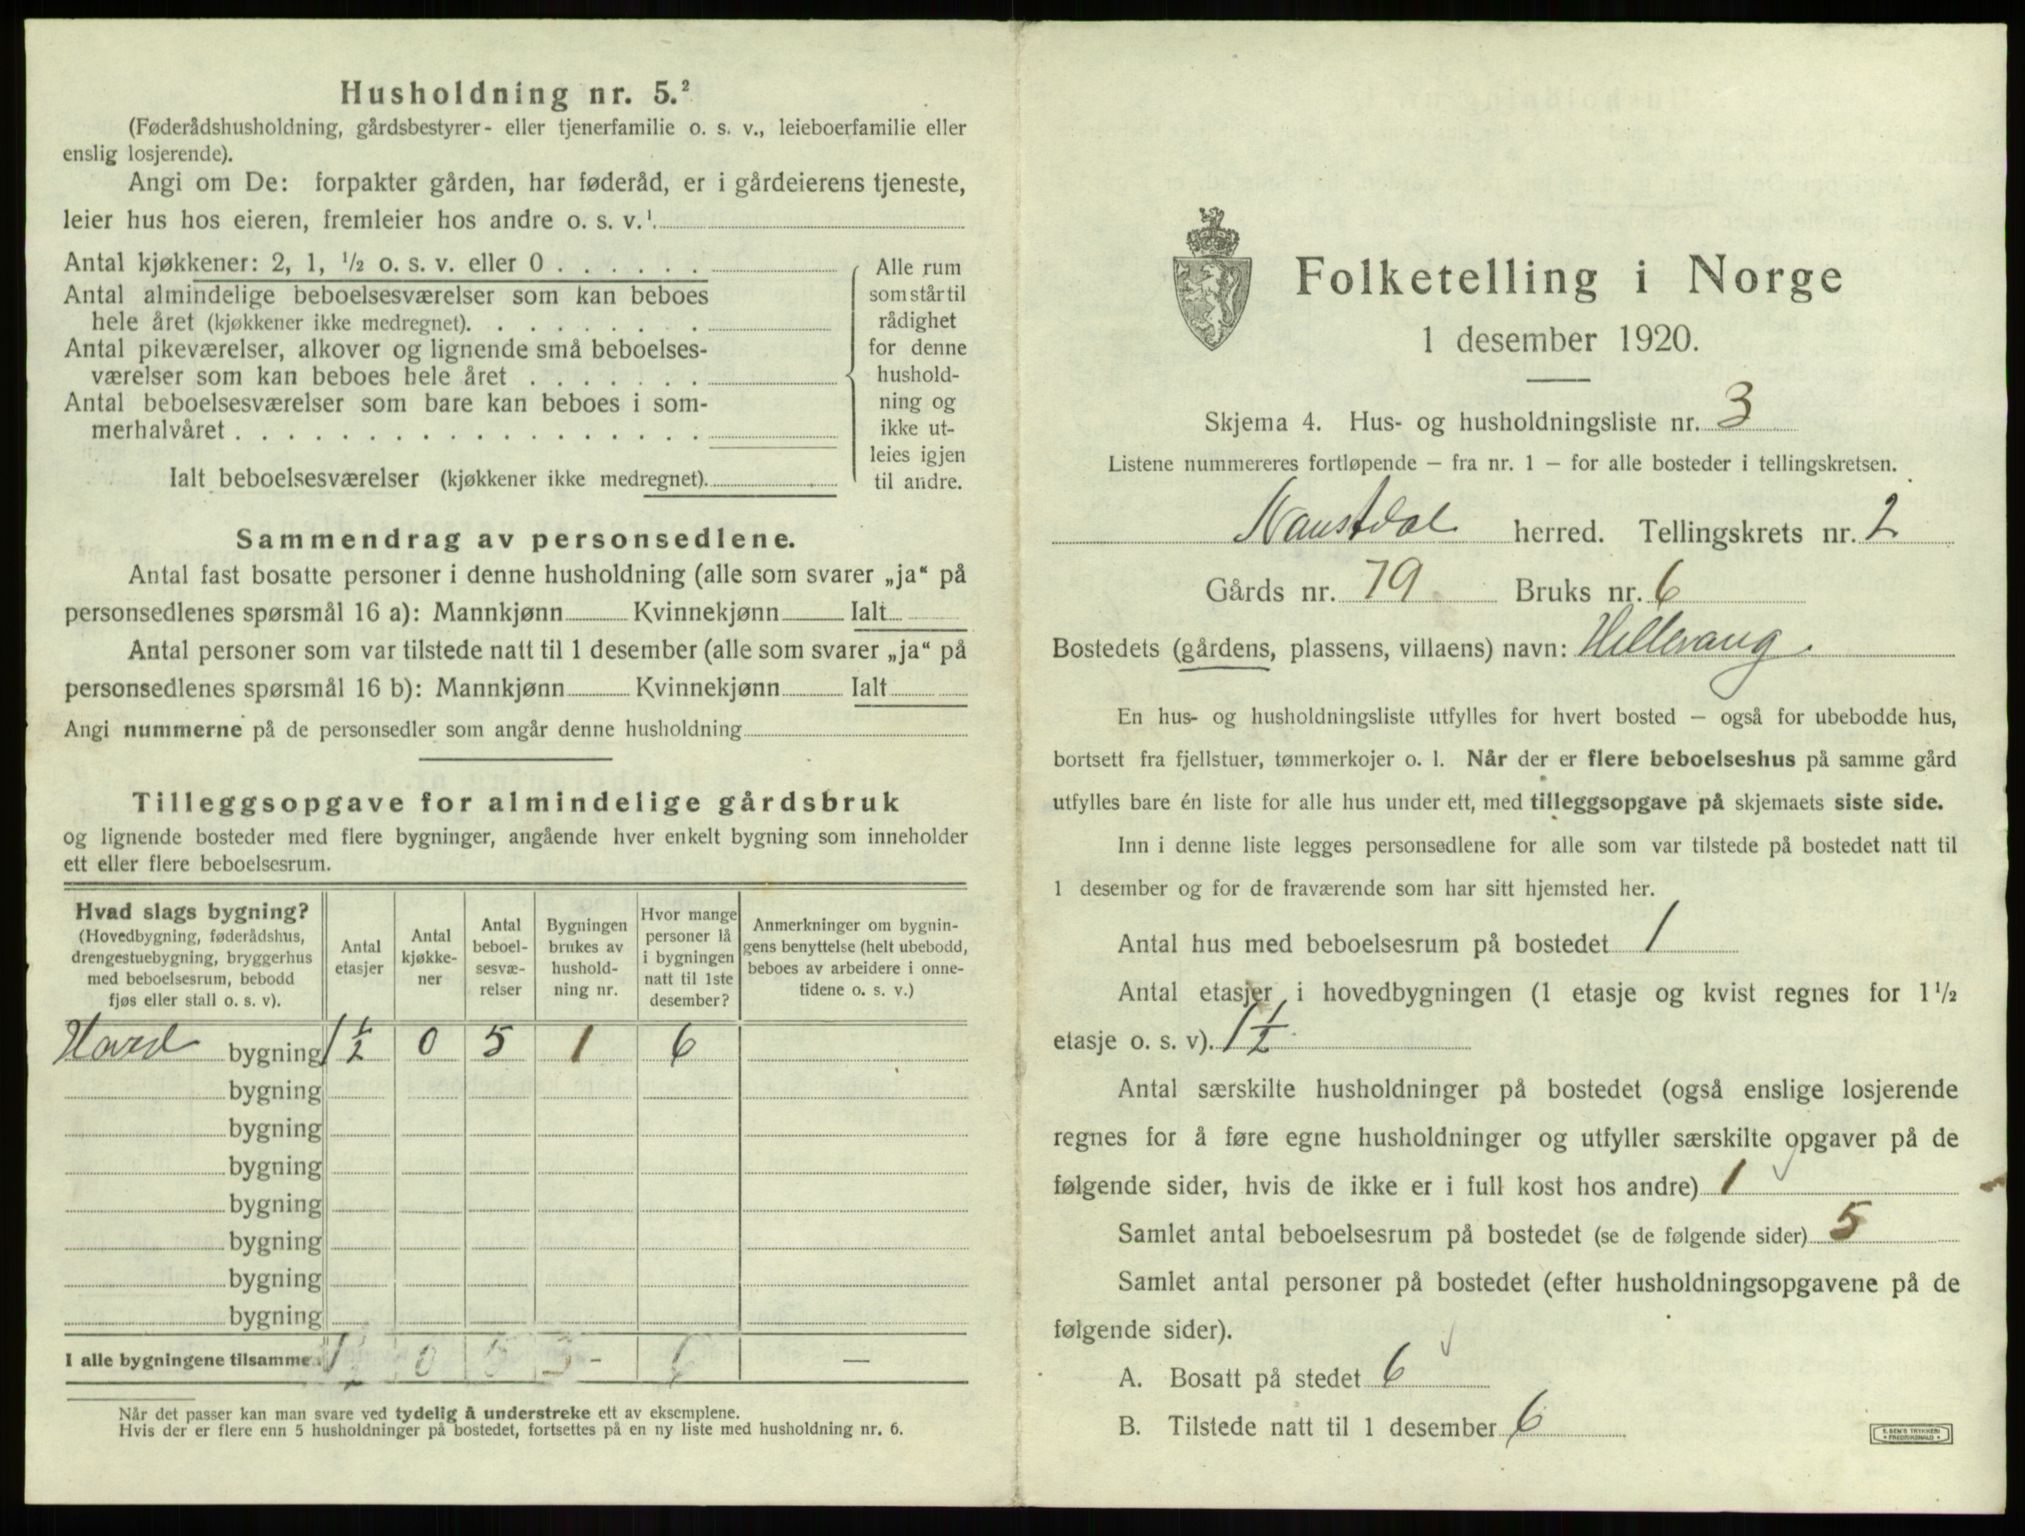 Husholdning nr. 5.²
(Føderådshusholdning, gårdsbestyrer- eller tjenerfamilie o. s. v., leieboerfamilie eller
enslig losjerende).
Angi om De: forpakter gården, har føderåd, er i gårdeierens tjeneste,
leier hus hos eieren, fremleier hos andre o. s. v.¹
Antal kjøkkener: 2, 1, ½ o. s. v. eller 0 . . . . . .
Antal almindelige beboelsesværelser som kan beboes
hele året (kjøkkener ikke medregnet). . . . . . . .
Antal pikeværelser, alkover og lignende små beboelses-
værelser som kan beboes hele året . . . . . . .
Antal beboelsesværelser som bare kan beboes i som-
merhalvåret . . . . . . . . . . . . . . . . . .
Ialt beboelsesværelser (kjøkkener ikke medregnet).
Alle rum
som står til
rådighet
for denne
hushold-
ning og
ikke ut-
leies igjen
til andre.
Sammendrag av personsedlene.
Antal fast bosatte personer i denne husholdning (alle som svarer „ja“ på
personsedlenes spørsmål 16 a): Mannkjønn Kvinnekjønn Ialt
Antal personer som var tilstede natt til 1 desember (alle som svarer „ja“ på
personsedlenes spørsmål 16 b): Mannkjønn Kvinnekjønn Ialt
Angi nummerne på de personsedler som angår denne husholdning
Tilleggsopgave for almindelige gårdsbruk
og lignende bosteder med flere bygninger, angående hver enkelt bygning som inneholder
ett eller flere beboelsesrum.
Hvad slags bygning?
(Hovedbygning, føderådshus,
drengestuebygning, bryggerhus
med beboelsesrum, bebodd
fjøs eller stall o. s. v).
Antal
etasjer
Antal
kjøkke-
ner
Antal
beboel-
sesvæ-
relser
Bygningen
brukes av
hushold-
ning nr.
Hvor mange
personer lå
i bygningen
natt til 1ste
desember?
Anmerkninger om bygnin-
gens benyttelse (helt ubebodd,
beboes av arbeidere i onne-
tidene o. s. v.)
Hoved bygning 1½ 0 5 1 6
bygning
bygning
bygning
bygning
bygning
bygning
bygning
I alle bygningene tilsamme. 1½ 0 5 - 6 —
Når det passer kan man svare ved tydelig å understreke ett av eksemplene.
Hvis der er flere enn 5 husholdninger på bostedet, fortsettes på en ny liste med husholdning nr. 6.
Folketelling i Norge
1 desember 1920.
Skjema 4. Hus- og husholdningsliste nr. 3
Listene nummereres fortløpende – fra nr. 1 – for alle bosteder i tellingskretsen.
Naustdal herred. Tellingskrets nr. 2
Gårds nr. 79 Bruks nr. 6
Bostedets (gårdens, plassens, villaens) navn: Hellevang
En hus- og husholdningsliste utfylles for hvert bosted – også for ubebodde hus,
bortsett fra fjellstuer, tømmerkojer o. l. Når der er flere beboelseshus på samme gård
utfylles bare én liste for alle hus under ett, med tilleggsopgave på skjemaets siste side.
Inn i denne liste legges personsedlene for alle som var tilstede på bostedet natt til
1 desember og for de fraværende som har sitt hjemsted her.
Antal hus med beboelsesrum på bostedet 1
Antal etasjer i hovedbygningen (1 etasje og kvist regnes for 1½
etasje o. s. v). 1½
Antal særskilte husholdninger på bostedet (også enslige losjerende
regnes for å føre egne husholdninger og utfyller særskilte opgaver på de
følgende sider, hvis de ikke er i full kost hos andre) 1
Samlet antal beboelsesrum på bostedet (se de følgende sider) 5
Samlet antal personer på bostedet (efter husholdningsopgavene på de
følgende sider).
A. Bosatt på stedet 6
B. Tilstede natt til 1 desember 6